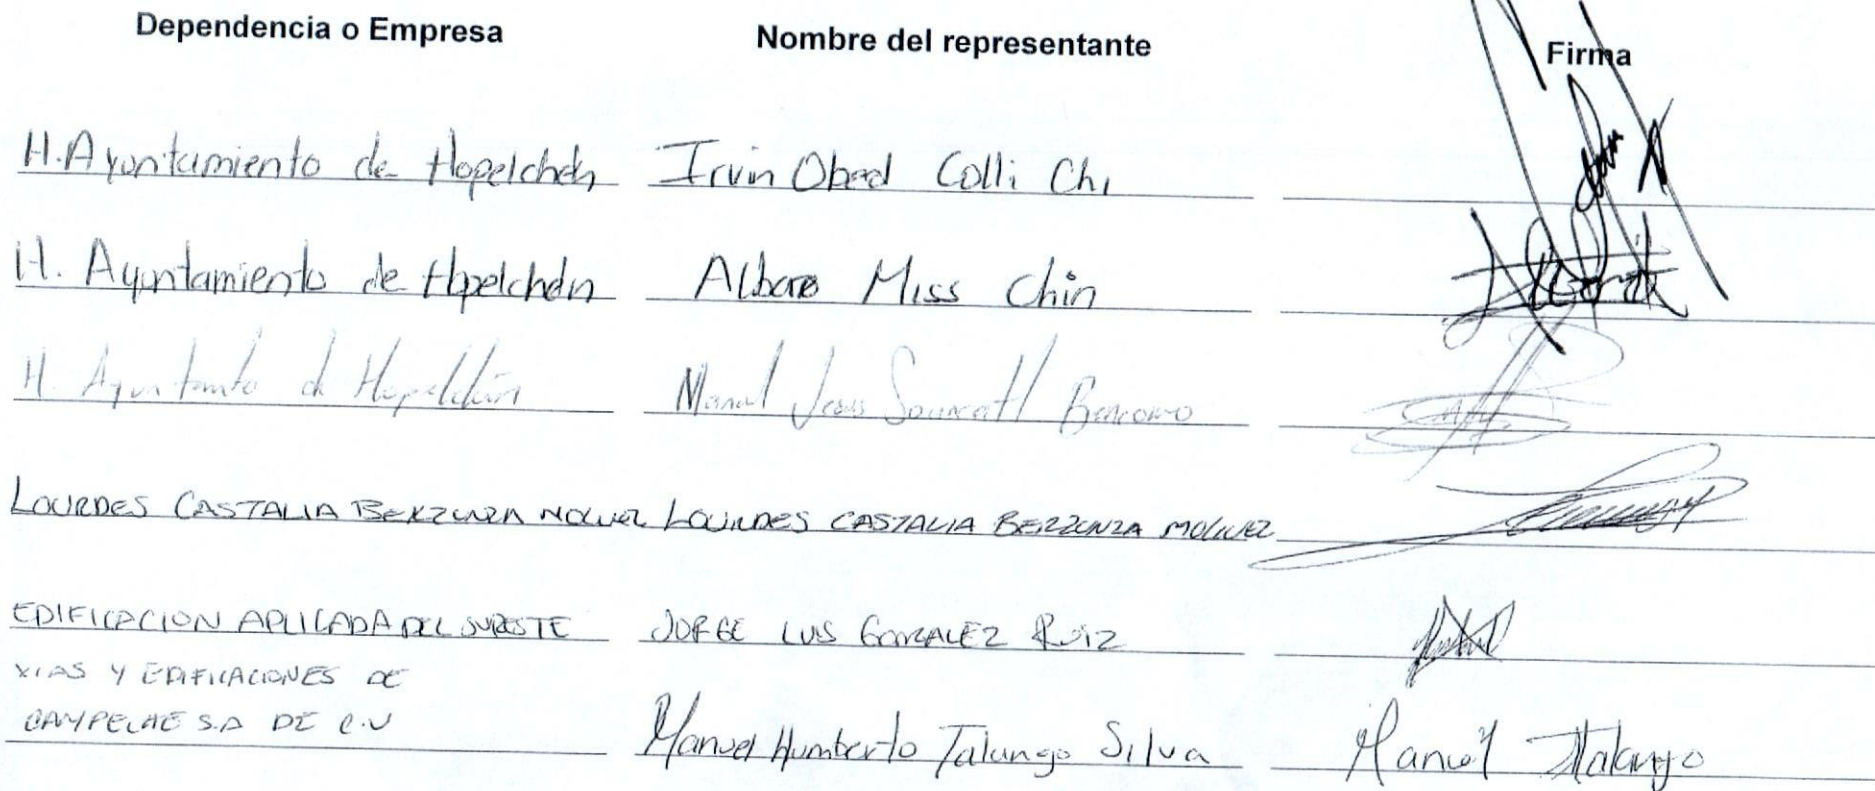 Dependencia o Empresa Nombre del representante Firma
H. Ayuntamiento de Hopelchén Irvin Obed Colli Chi
H. Ayuntamiento de Hopelchén Alvaro Miss Chin
H. Ayuntamiento de Hopelchén Manuel Jesus
LOURDES CASTALIA BERZUNZA MOGUEL LOURDES CASTALIA BERZUNZA MOGUEL
EDIFICACION APLICADA DEL SURESTE JORGE LUIS GONZALEZ RUIZ
VIAS Y EDIFICACIONES DE
CAMPECHE S.A DE C.V Manuel Humberto Talango Silva Manuel Talango